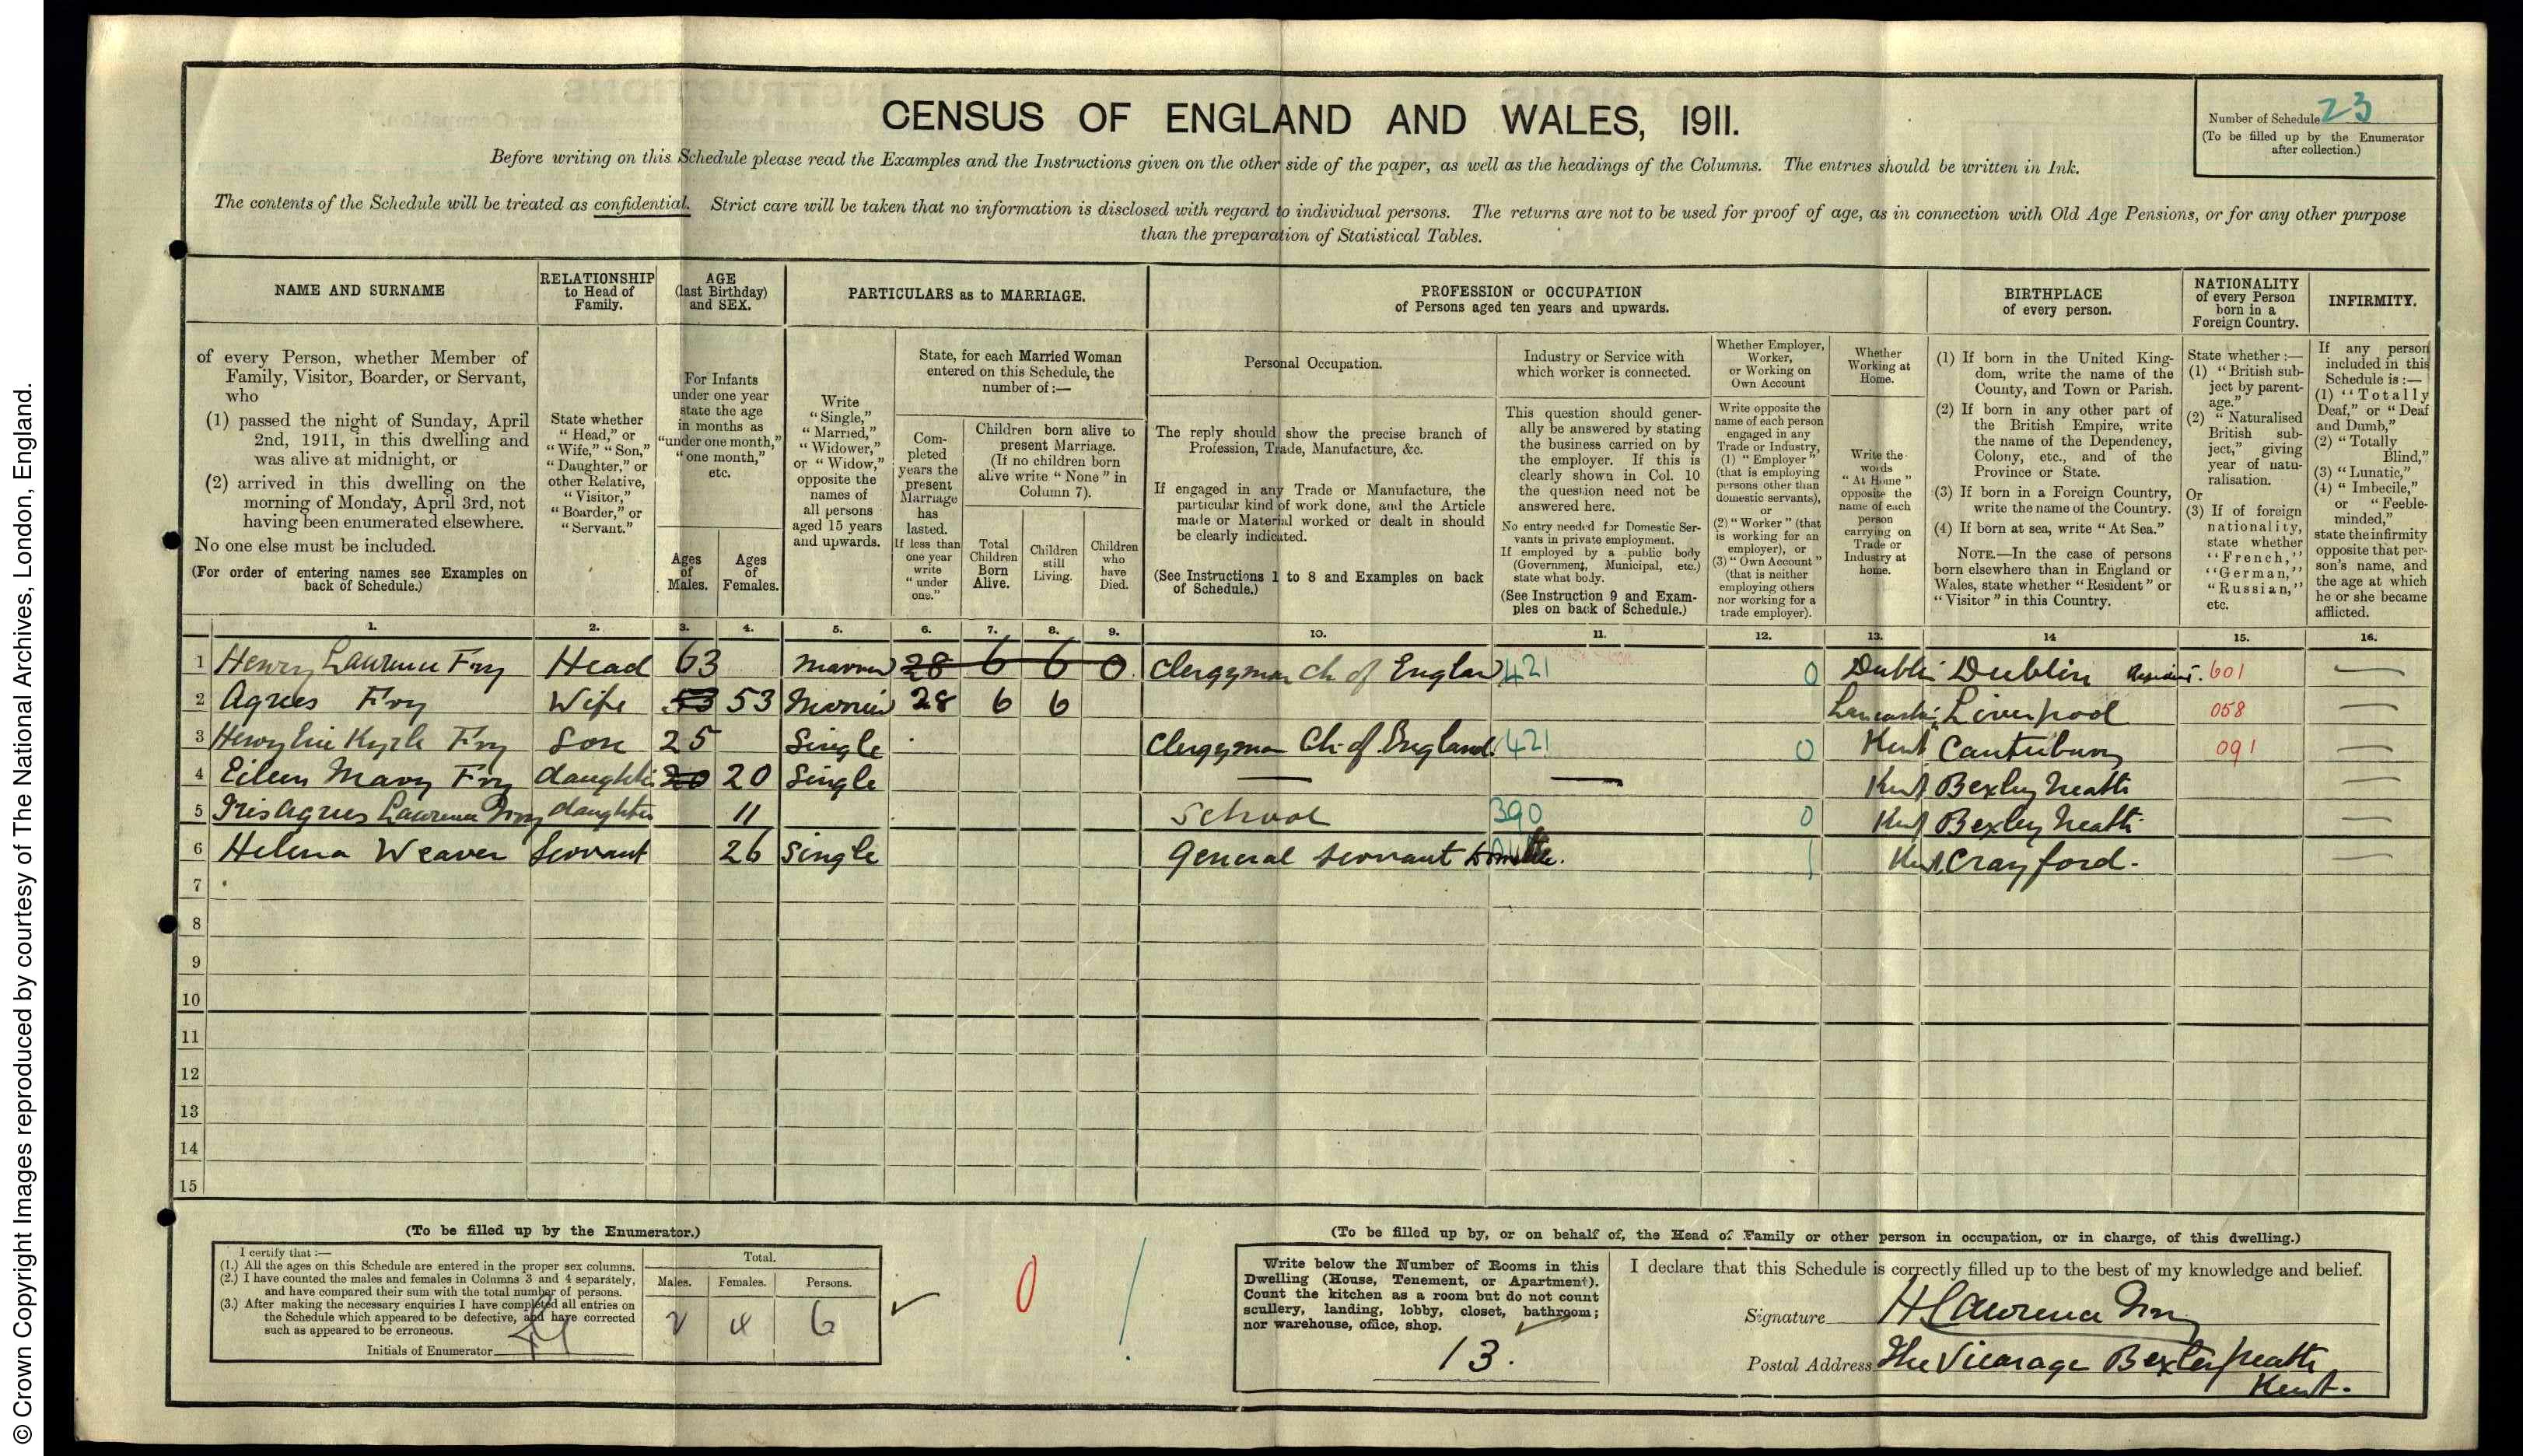 CENSUS OF ENGLAND AND WALES, 1911.
Number of Schedule 23
(To be filled up by the Enumerator
after collection.)
Before writing on this Schedule please read the Examples and the Instructions given on the other side of the paper, as well as the headings of the Columns. The entries should be written in Ink.
The contents of the Schedule will be treated as confidential. Strict care will be taken that no information is disclosed with regard to individual persons. The returns are not to be used for proof of age, as in connection with Old Age Pensions, or for any other purpose
than the preparation of Statistical Tables.
NAME AND SURNAME
of every Person, whether Member of
Family, Visitor, Boarder, or Servant,
who
(1) passed the night of Sunday, April
2nd, 1911, in this dwelling and
was alive at midnight, or
(2) arrived in this dwelling on the
morning of Monday, April 3rd, not
having been enumerated elsewhere.
No one else must be included.
(For order of entering names see Examples on
back of Schedule.)
RELATIONSHIP
to Head of
Family.
State whether
"Head," or
"Wife," "Son,"
"Daughter," or
other Relative,
"Visitor,"
"Boarder," or
"Servant."
AGE
(last Birthday)
and SEX.
For Infants
under one year
state the age
in months as
"under one month,"
"one month,"
etc.
Ages
of
Males.
Ages
of
Females.
PARTICULARS as to MARRIAGE.
Write
"Single,"
"Married,"
"Widower,"
or "Widow,"
opposite the
names of
all persons
aged 15 years
and upwards.
State, for each Married Woman
entered on this Schedule, the
number of:—
Com-
pleted
years the
present
Marriage
has
lasted.
If less than
one year
write
"under
one."
Children born alive to
present Marriage.
(If no children born
alive write "None" in
Column 7).
Total
Children
Born
Alive.
Children
still
Living.
Children
who
have
Died.
PROFESSION or OCCUPATION
of Persons aged ten years and upwards.
Personal Occupation.
The reply should show the precise branch of
Profession, Trade, Manufacture, &c.
If engaged in any Trade or Manufacture, the
particular kind of work done, and the Article
made or Material worked or dealt in should
be clearly indicated.
(See Instructions 1 to 8 and Examples on back
of Schedule.)
Industry or Service with
which worker is connected.
This question should gener-
ally be answered by stating
the business carried on by
the employer. If this is
clearly shown in Col. 10
the question need not be
answered here.
No entry needed for Domestic Ser-
vants in private employment.
If employed by a public body
(Government, Municipal, etc.)
state what body.
(See Instruction 9 and Exam-
ples on back of Schedule.)
Whether Employer,
Worker,
or Working on
Own Account
Write opposite the
name of each person
engaged in any
Trade or Industry,
(1) "Employer"
(that is employing
persons other than
domestic servants),
or
(2) "Worker" (that
is working for an
employer), or
(3) "Own Account"
(that is neither
employing others
nor working for a
trade employer).
Whether
Working at
Home.
Write the
words
"At Home"
opposite the
name of each
person
carrying on
Trade or
Industry at
home.
BIRTHPLACE
of every person.
(1) If born in the United King-
dom, write the name of the
County, and Town or Parish.
(2) If born in any other part of
the British Empire, write
the name of the Dependency,
Colony, etc., and of the
Province or State.
(3) If born in a Foreign Country,
write the name of the Country.
(4) If born at sea, write "At Sea."
NOTE.—In the case of persons
born elsewhere than in England or
Wales, state whether "Resident" or
"Visitor" in this Country.
NATIONALITY
of every Person
born in a
Foreign Country.
State whether:—
(1) "British sub-
ject by parent-
age."
(2) "Naturalised
British sub-
ject," giving
year of natu-
ralisation.
Or
(3) If of foreign
nationality,
state whether
"French,"
"German,"
"Russian,"
etc.
INFIRMITY.
If any person
included in this
Schedule is:—
(1) "Totally
Deaf," or "Deaf
and Dumb,"
(2) "Totally
Blind,"
(3) "Lunatic,"
(4) "Imbecile,"
or "Feeble-
minded,"
state the infirmity
opposite that per-
son's name, and
the age at which
he or she became
afflicted.
1. 2. 3. 4. 5. 6. 7. 8. 9. 10. 11. 12. 13. 14 15. 16.
1 Henry Lawrence Fry Head 63 Married 28 6 6 0 Clergyman Ch of England 421 0 Dublin Dublin Resident. 601 —
2 Agnes Fry Wife 53 53 Married 28 6 6 Lancashire Liverpool 058 —
3 Henry Eric Kyrle Fry Son 25 Single Clergyman Ch. of England 421 0 Kent Canterbury 091 —
4 Eileen Mary Fry daughter 20 20 Single — — Kent Bexley Heath —
5 Iris Agnes Lawrence Fry daughter 11 School 390 0 Kent Bexley Heath —
6 Helena Weaver Servant 26 Single General Servant Domestic. 1 Kent Crayford. —
7
8
9
10
11
12
13
14
15
(To be filled up by the Enumerator.)
I certify that:—
(1.) All the ages on this Schedule are entered in the proper sex columns.
(2.) I have counted the males and females in Columns 3 and 4 separately,
and have compared their sum with the total number of persons.
(3.) After making the necessary enquiries I have completed all entries on
the Schedule which appeared to be defective, and have corrected
such as appeared to be erroneous.
Initials of Enumerator
Total.
Males. Females. Persons.
2 4 6
0
(To be filled up by, or on behalf of, the Head of Family or other person in occupation, or in charge, of this dwelling.)
Write below the Number of Rooms in this
Dwelling (House, Tenement, or Apartment).
Count the kitchen as a room but do not count
scullery, landing, lobby, closet, bathroom;
nor warehouse, office, shop.
13.
I declare that this Schedule is correctly filled up to the best of my knowledge and belief.
Signature H Lawrence Fry
Postal Address The Vicarage Bexley heath
Kent.
© Crown Copyright Images reproduced by courtesy of The National Archives, London, England.